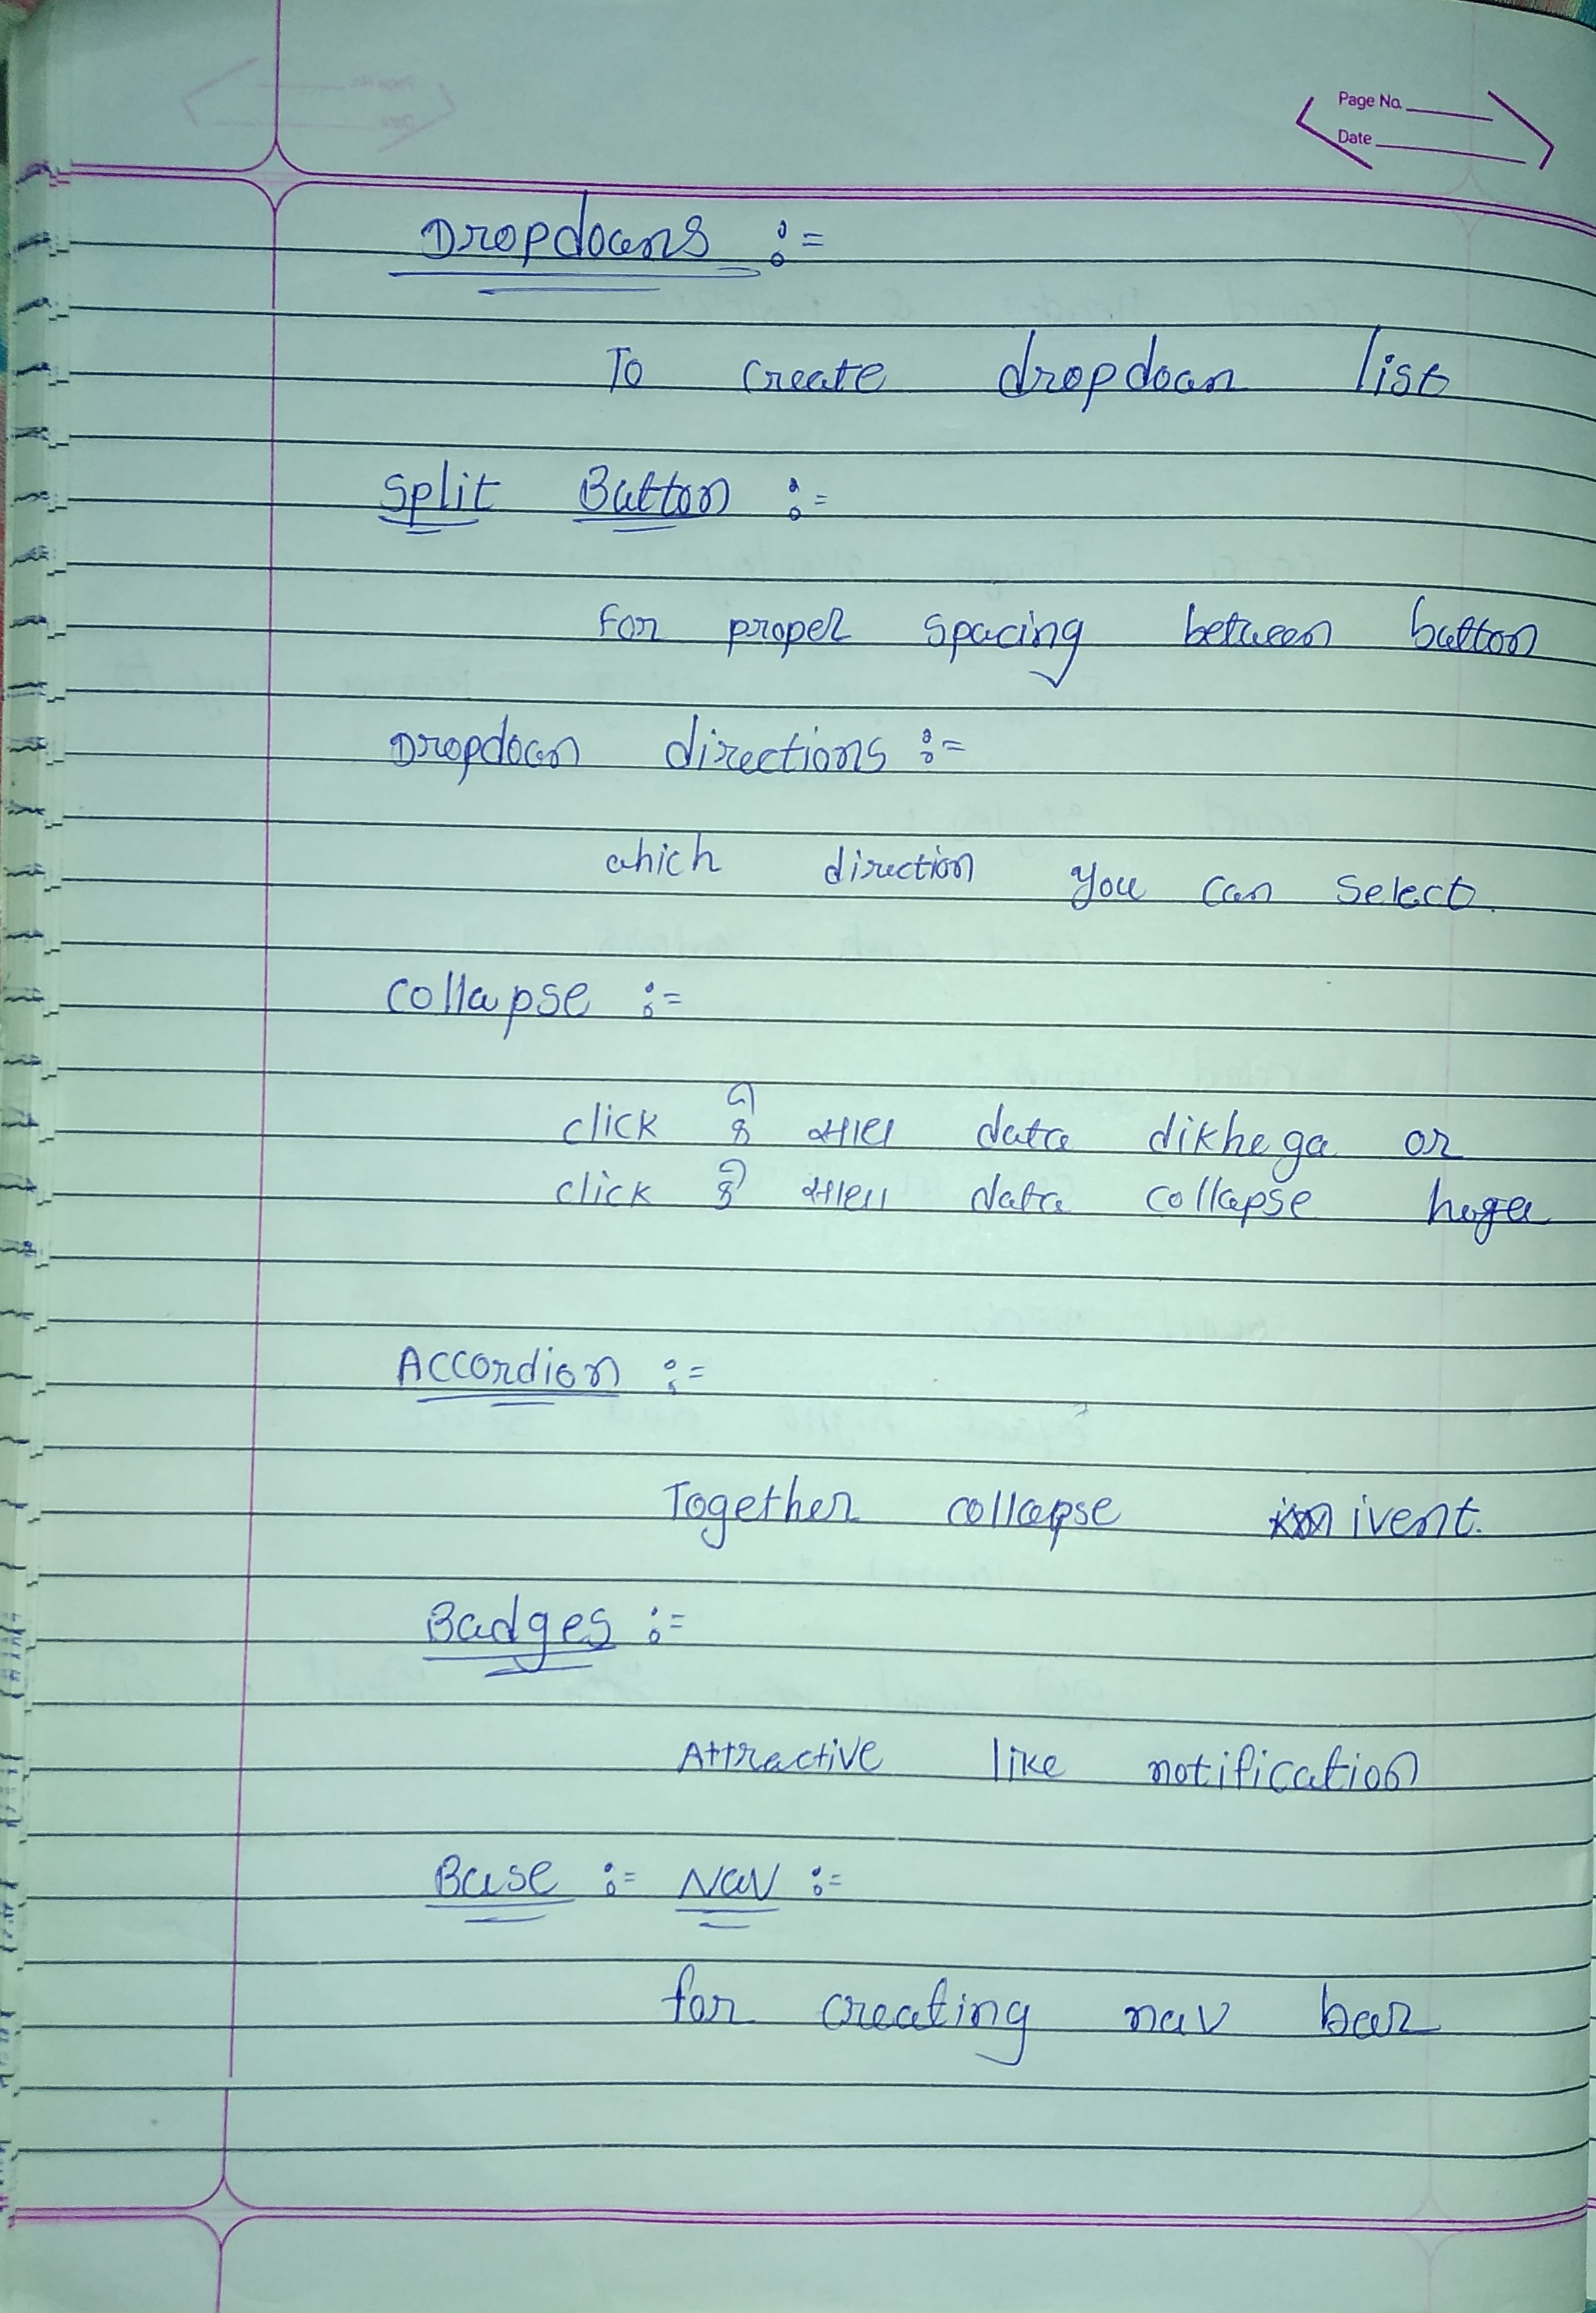 Page No.
Date
Dropdowns :=
To create dropdown list
Split Button :=
For proper spacing between button
Dropdown directions :=
which direction you can select.
Collapse :=
click data dikhega or
click data collapse hoga
Accordion :=
Together collapse ivent.
Badges :=
Attractive like notification
Base := Nav :=
for creating nav bar